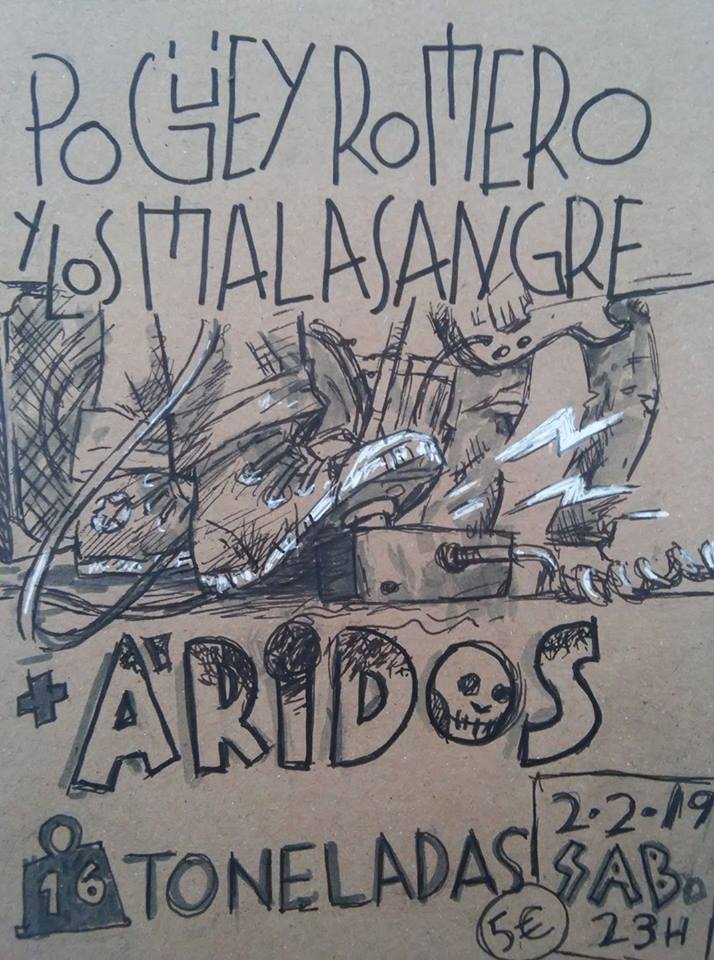 POGÜEY ROMERO
Y LOS MALASANGRE
+ ÄRIDOS
16 TONELADAS
2·2·19
SAB.
23H
5€